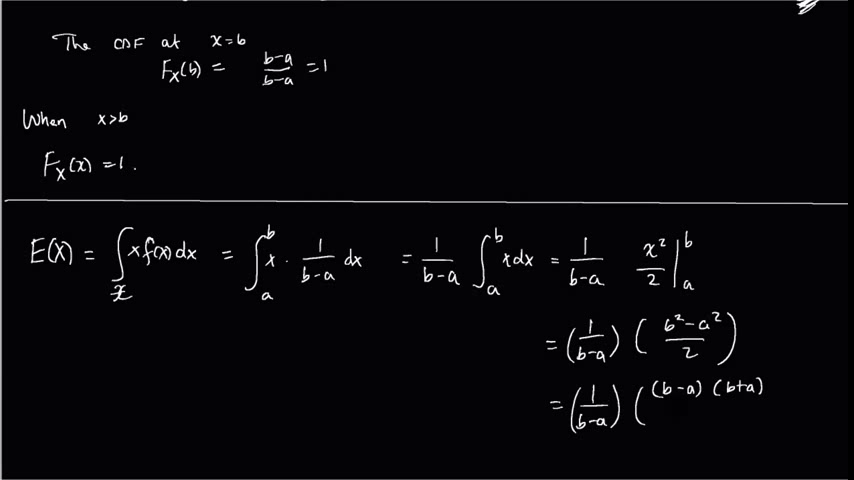 The CDF at x=b
F_X(b) = \frac{b-a}{b-a} = 1
When x>b
F_X(x) = 1.
E(X) = \int_{\mathcal{X}} x f(x) dx = \int_a^b x \cdot \frac{1}{b-a} dx = \frac{1}{b-a} \int_a^b x dx = \frac{1}{b-a} \frac{x^2}{2} |_a^b
= (\frac{1}{b-a}) (\frac{b^2-a^2}{2})
= (\frac{1}{b-a}) ( (b-a) (b+a)